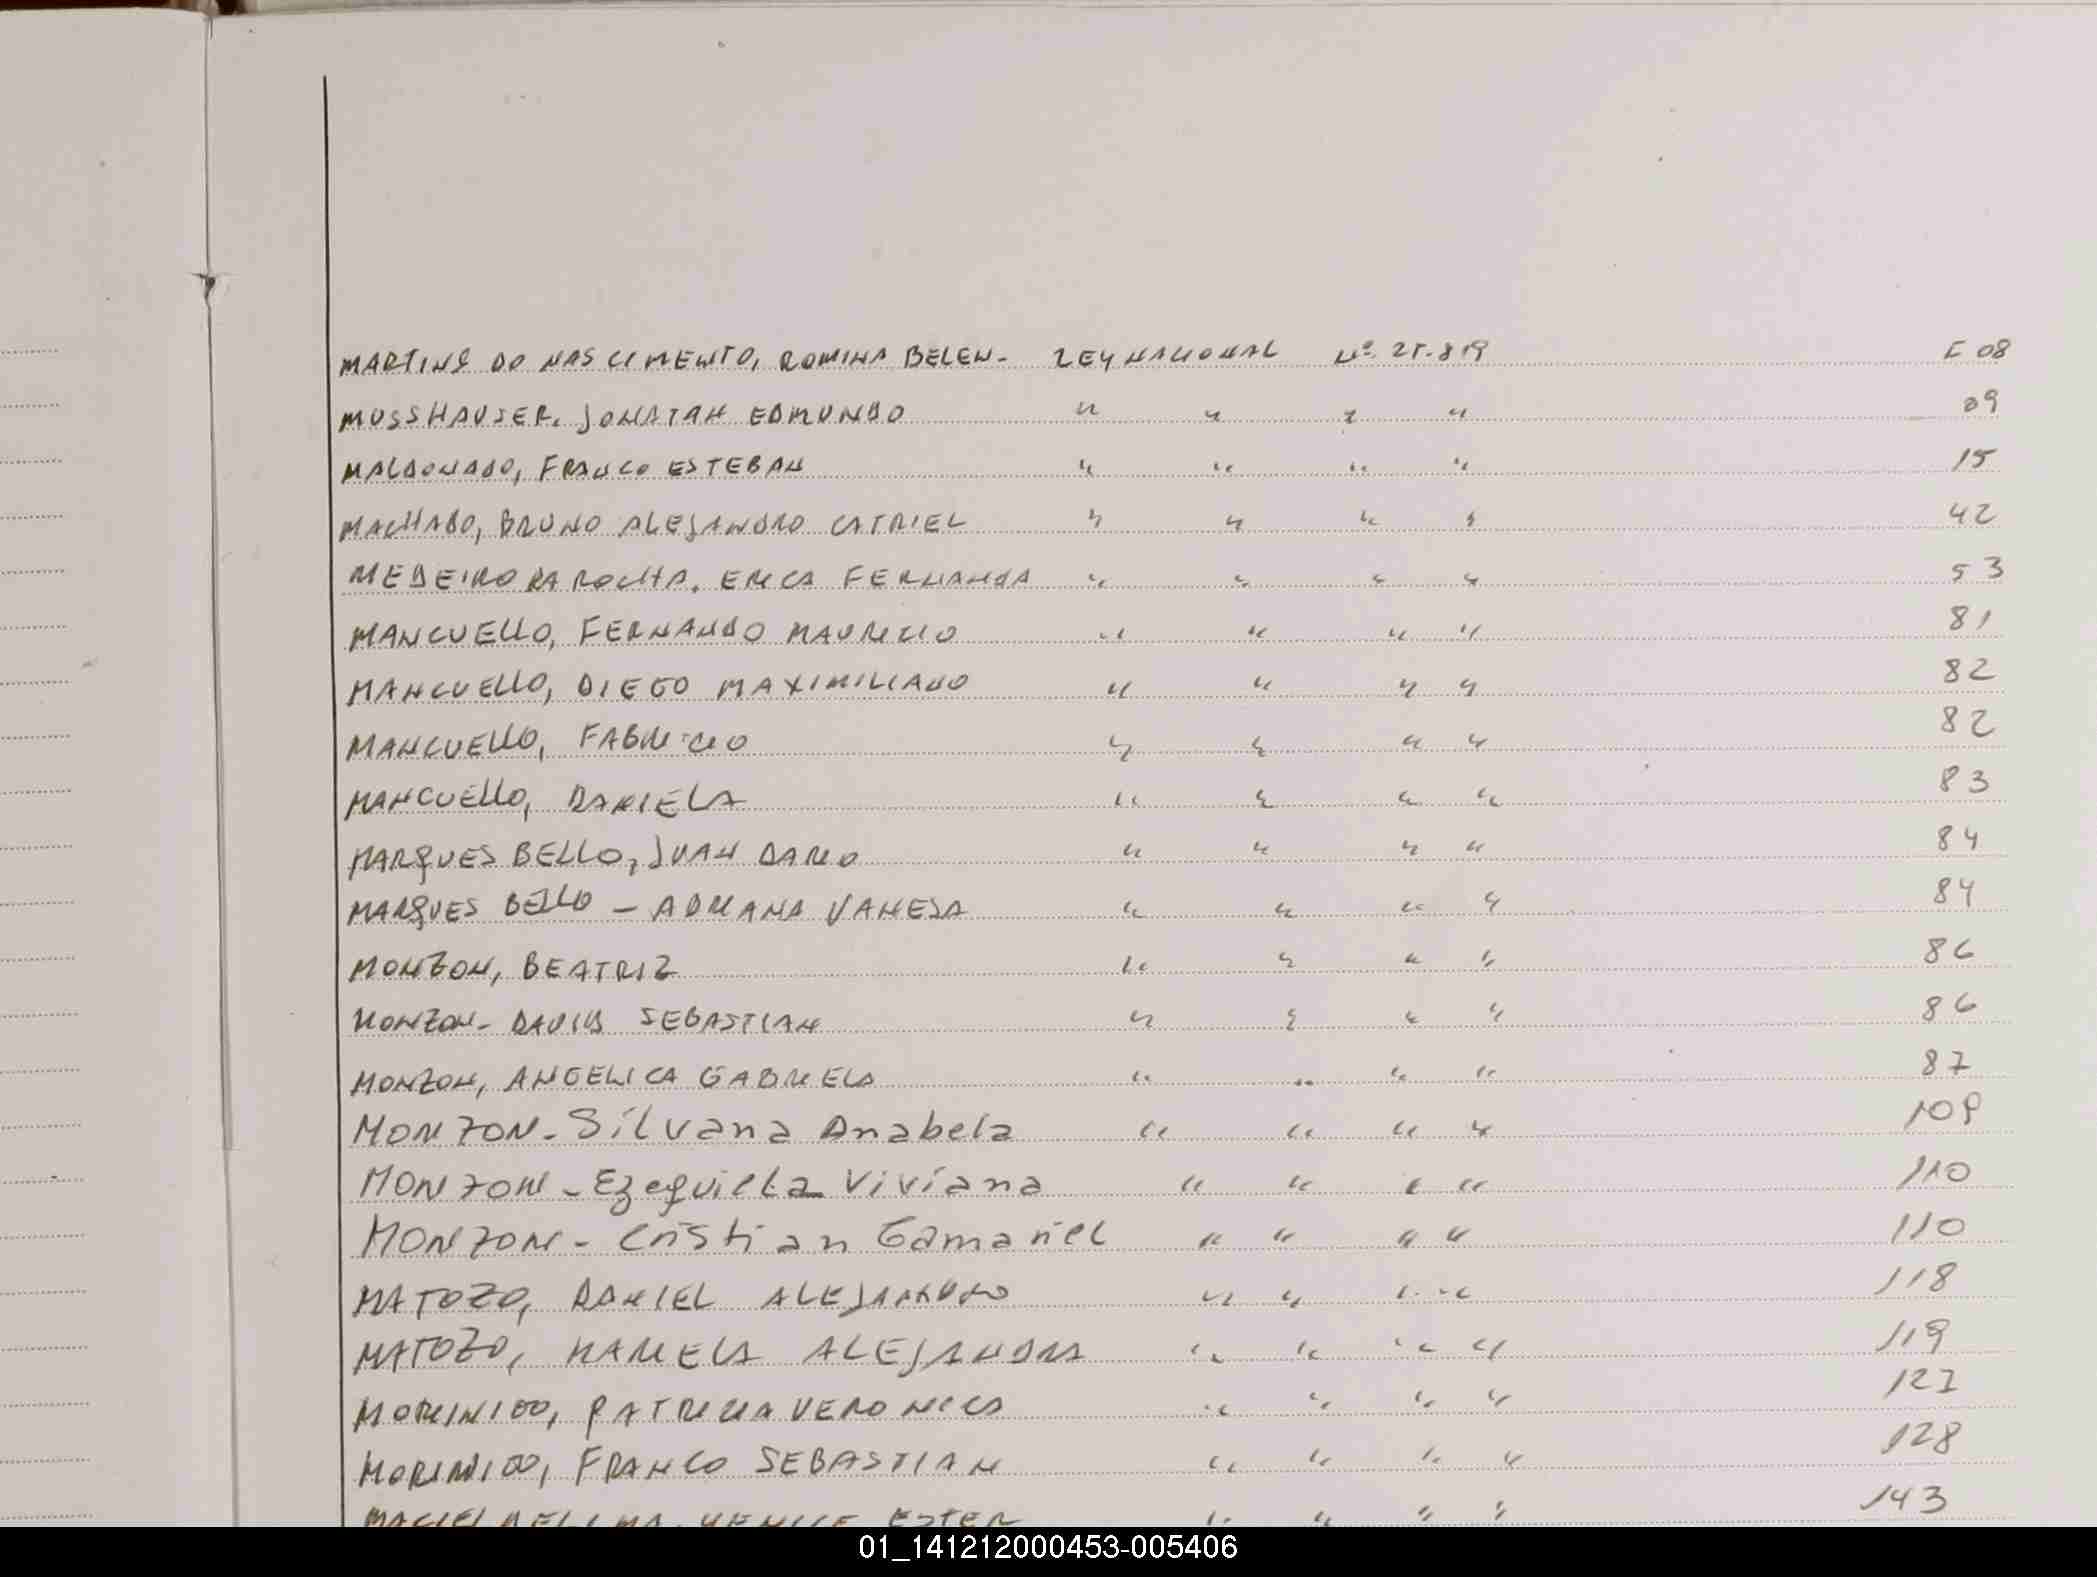 MARTINS DO NASCIMENTO, ROMINA BELEN- LEY NACIONAL Nº 25.819 F 08
MUSSHAUSER, JONATAN EDMUNDO " " " " 09
MALDONADO, FRANCO ESTEBAN " " " " 15
MACHADO, BRUNO ALEJANDRO CATRIEL " " " " 42
MEDEIRO DA ROCHA, ERICA FERNANDA " " " " 53
MANCUELLO, FERNANDO MAURICIO " " " " 81
MANCUELLO, DIEGO MAXIMILIANO " " " " 82
MANCUELLO, FABRICIO " " " " 82
MANCUELLO, DANIELA " " " " 83
MARQUES BELLO, JUAN DARIO " " " " 84
MARQUES BELLO - ADRIANA VANESA " " " " 84
MONZON, BEATRIZ " " " " 86
MONZON- DAVID SEBASTIAN " " " " 86
MONZON, ANGELICA GABRIELA " " " " 87
MONZON- Silvana Anabela " " " " 109
MONZON- Ezequiela Viviana " " " " 110
MONZON- Cristian Gamariel " " " " 110
MATOZO, DANIEL ALEJANDRO " " " " 118
MATOZO, MARIELA ALEJANDRA " " " " 119
MORINIGO, PATRICIA VERONICA " " " " 127
MORINIGO, FRANCO SEBASTIAN " " " " 128
MACIEL DE LIMA, ESTER " " " " 143
01_141212000453-005406